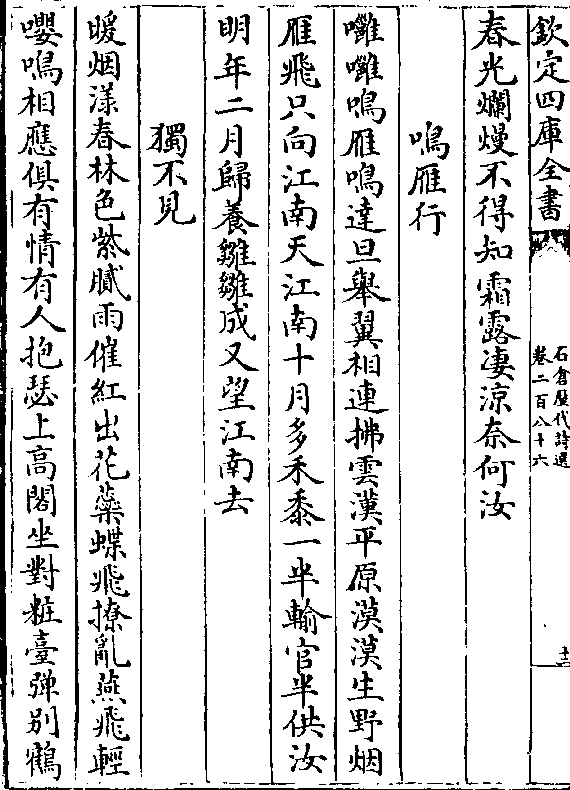 欽定四庫全書
石倉歷代詩選
卷二百八十六
十二
春光爛熳不得知霜露凄涼奈何汝
鳴雁行
囄囄鳴雁鳴達旦舉翼相連拂雲漢平原漠漠生野烟
雁飛只向江南天江南十月多禾黍一半輸官半供汝
明年二月歸養雛雛成又望江南去
獨不見
暖烟漾春林色紫膩雨催紅出花蘂蝶飛撩亂燕飛輕
嚶鳴相應俱有情有人抱瑟上高閣坐對粧臺彈别鶴